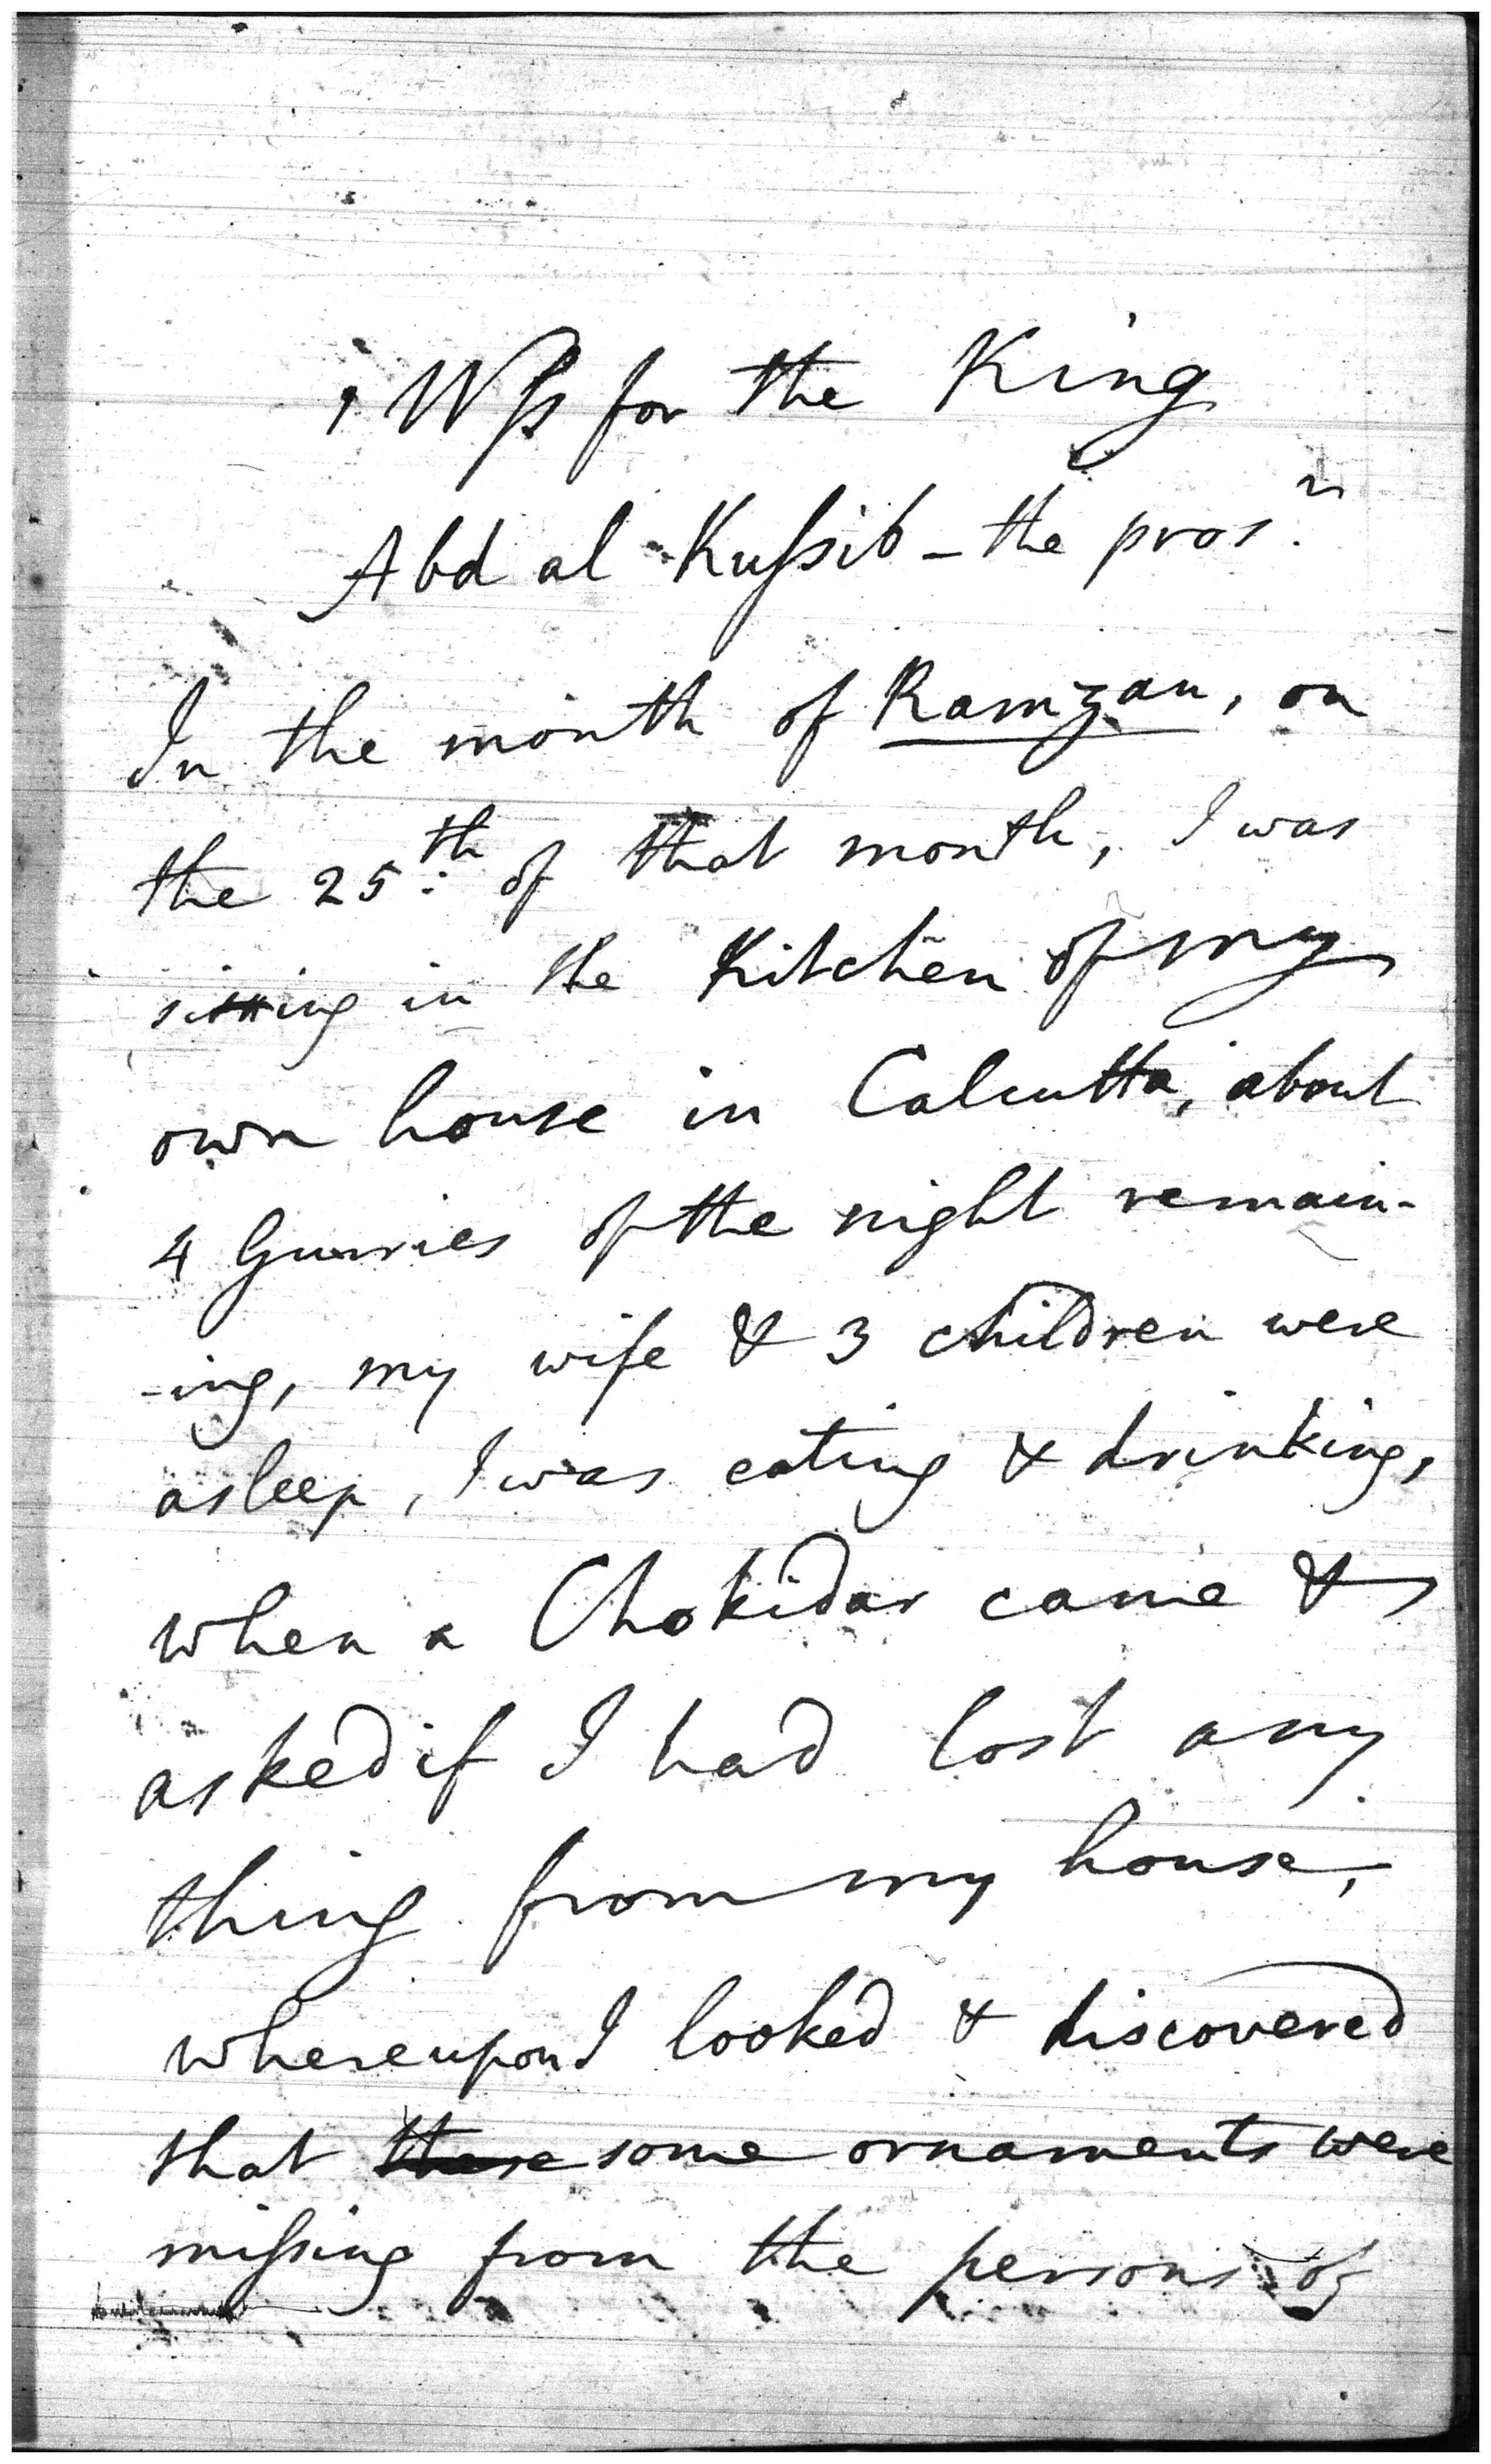 Wss for the King
Abd al Kussib - the pros.r
In the month of Ramzan, on
the 25:th of that month, I was
sitting in the Kitchen of my
own house in Calcutta, about
4 Gurries of the night remain-
-ing, my wife & 3 children were
asleep, I was eating & drinking,
when a Chokidar came &
asked if I had lost any
thing from my house,
whereupon I looked & discovered
that there some ornaments were
missing from the persons of